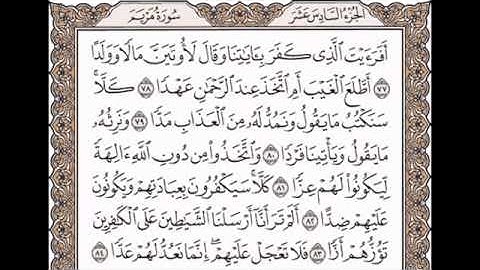 الجزء السادس عشر
سورة مريم
أَفَرَءَيْتَ ٱلَّذِى كَفَرَ بِـَٔايَـٰتِنَا وَقَالَ لَأُوتَيَنَّ مَالًا وَوَلَدًا
٧٧ أَطَّلَعَ ٱلْغَيْبَ أَمِ ٱتَّخَذَ عِندَ ٱلرَّحْمَـٰنِ عَهْدًا ٧٨ كَلَّا ۚ
سَنَكْتُبُ مَا يَقُولُ وَنَمُدُّ لَهُۥ مِنَ ٱلْعَذَابِ مَدًّا ٧٩ وَنَرِثُهُۥ
مَا يَقُولُ وَيَأْتِينَا فَرْدًا ٨٠ وَٱتَّخَذُوا۟ مِن دُونِ ٱللَّهِ ءَالِهَةً
لِّيَكُونُوا۟ لَهُمْ عِزًّا ٨١ كَلَّا ۚ سَيَكْفُرُونَ بِعِبَادَتِهِمْ وَيَكُونُونَ
عَلَيْهِمْ ضِدًّا ٨٢ أَلَمْ تَرَ أَنَّآ أَرْسَلْنَا ٱلشَّيَـٰطِينَ عَلَى ٱلْكَـٰفِرِينَ
تَؤُزُّهُمْ أَزًّا ٨٣ فَلَا تَعْجَلْ عَلَيْهِمْ ۖ إِنَّمَا نَعُدُّ لَهُمْ عَدًّا ٨٤